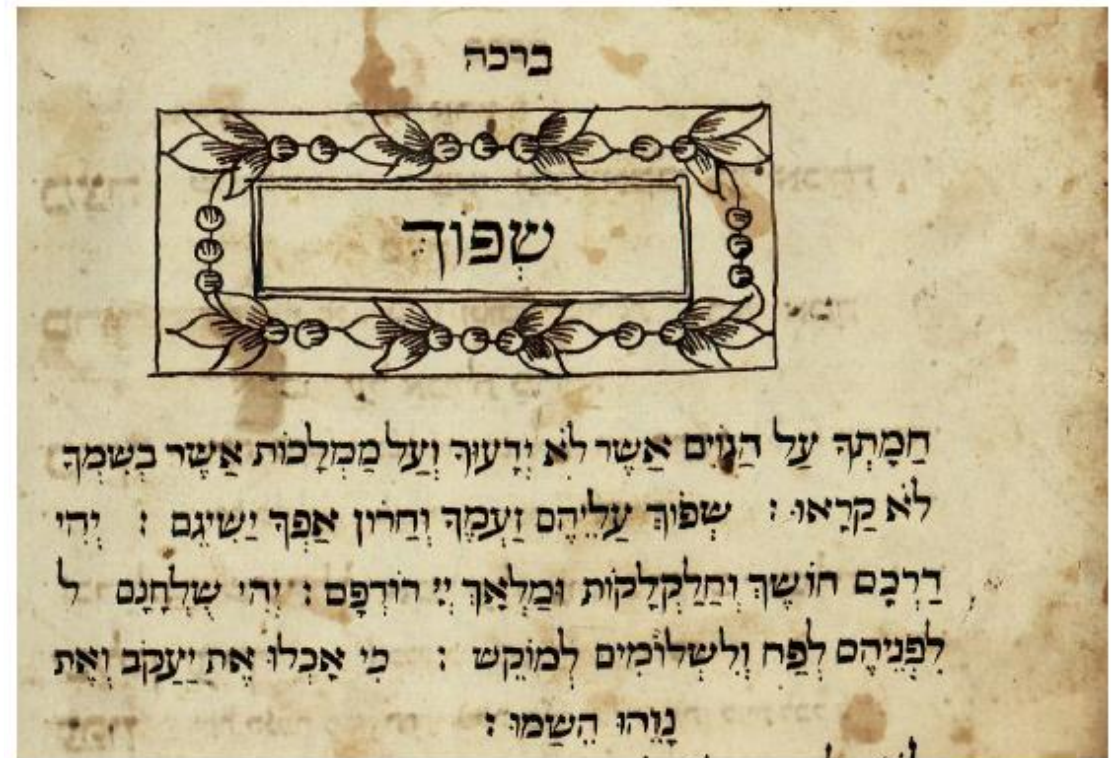 ברכה
שְפוֹךְ
חֲמָתְךָ עַל הַגוֹיִם אֲשֶר לֹא יְדָעוּךָ וְעַל מַמְלָכוֹת אֲשֶר בְשִמְךָ
לֹא קָרָאוּ : שְפוֹךְ עֲלֵיהֶם זַעְמֶךָ וְחֲרוֹן אַפְךָ יַשִיגֵם : יְהִי
דַרְכָם חוֹשֶךְ וְחֲלַקְלָקוֹת וּמַלְאָךְ יְיָ רוֹדְפָם : יְהִי שֻלְחָנָם ל
לִפְנֵיהֶם לְפַח וְלִשְלוֹמִים לְמוֹקֵש : כִי אָכְלוּ אֶת יַעֲקֹב וְאֶת
נָוֵהוּ הֵשַמוּ :